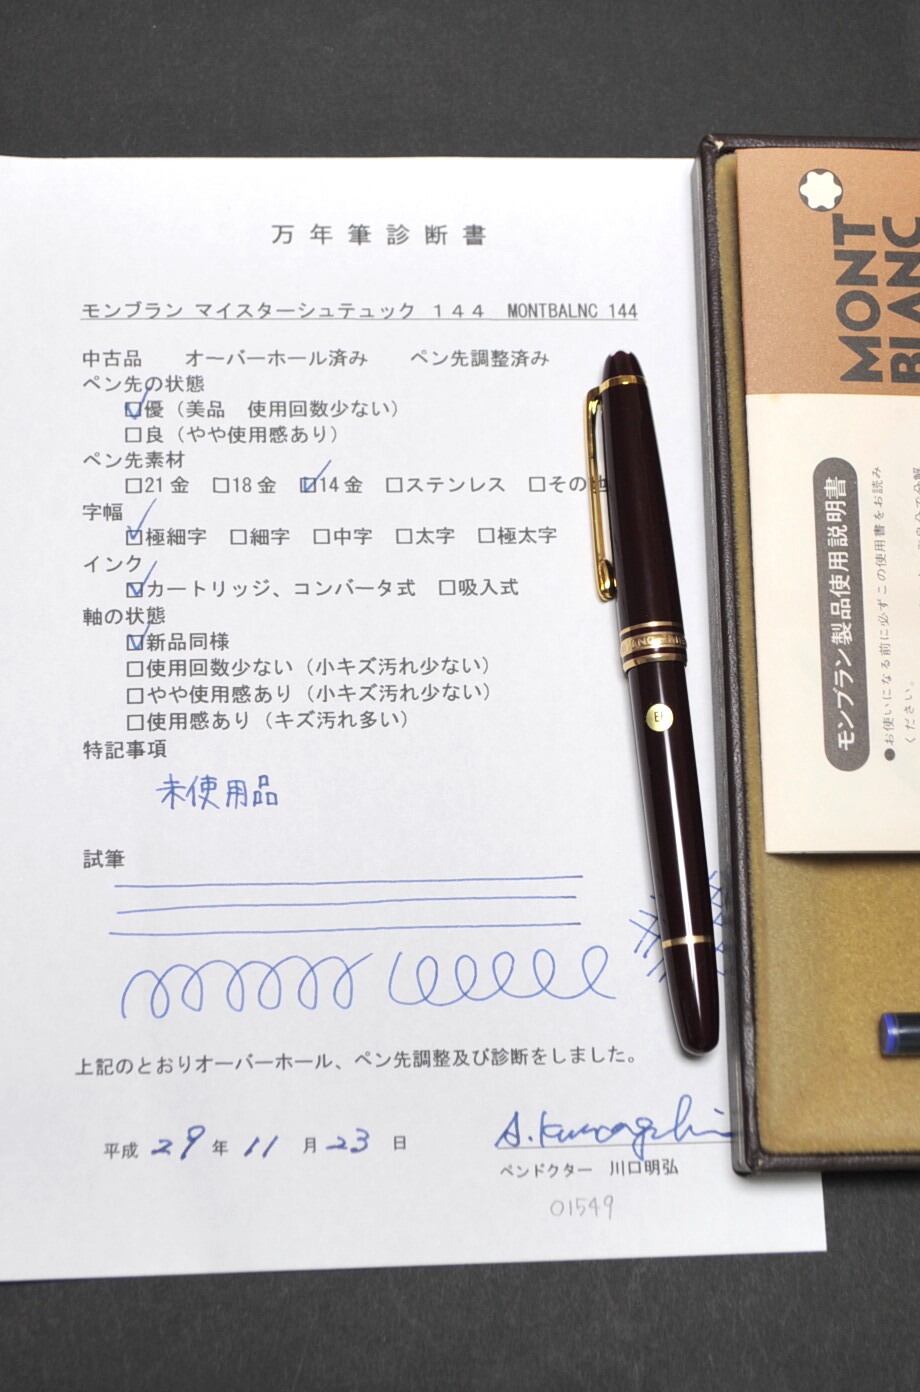 万年筆診断書
モンブラン マイスターシュテュック 144 MONTBALNC 144
中古品 オーバーホール済み ペン先調整済み
ペン先の状態
☑優（美品 使用回数少ない）
□良（やや使用感あり）
ペン先素材
□21金 □18金 ☑14金 □ステンレス □その他
字幅
☑極細字 □細字 □中字 □太字 □極太字
インク
☑カートリッジ、コンバータ式 □吸入式
軸の状態
☑新品同様
□使用回数少ない（小キズ汚れ少ない）
□やや使用感あり（小キズ汚れ少ない）
□使用感あり（キズ汚れ多い）
特記事項
未使用品
試筆
上記のとおりオーバーホール、ペン先調整及び診断をしました。
平成 29 年 11 月 23 日
ペンドクター 川口明弘
01549
EF
MONT
BLANC
モンブラン製品使用説明書
●お使いになる前に必ずこの使用書をお読み
ください。